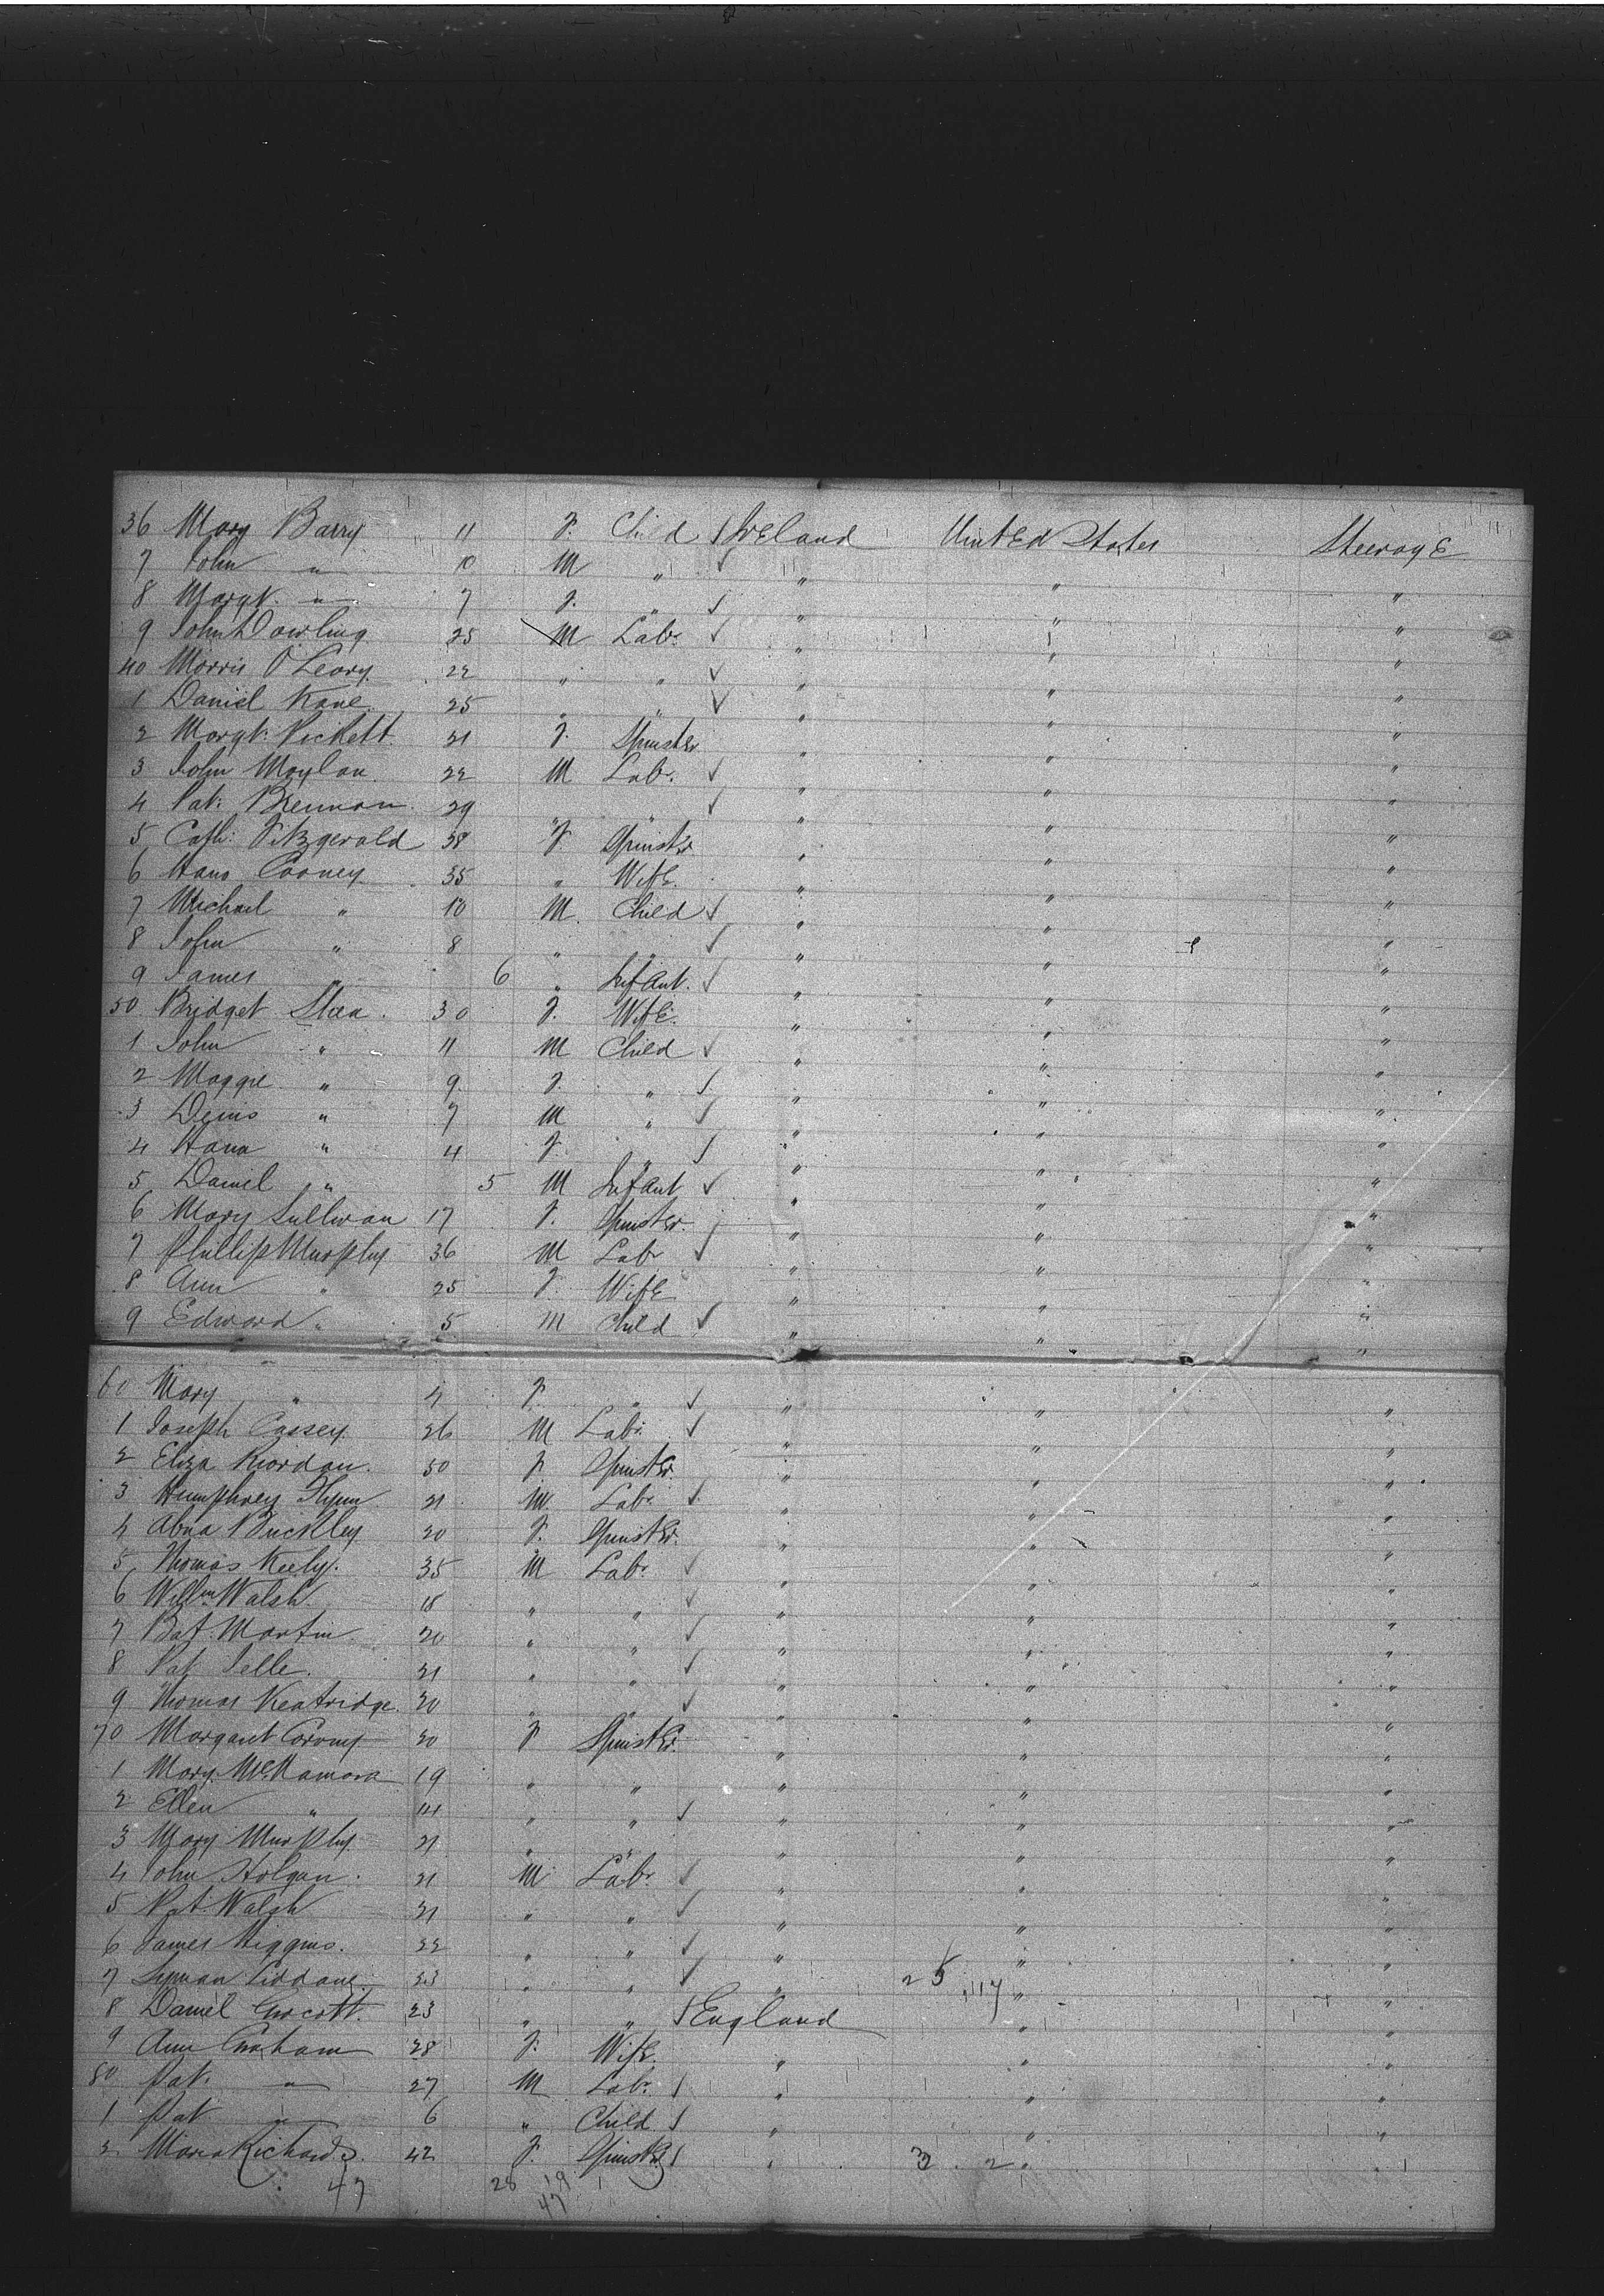 36 Mary Barry 11 F. Child Ireland United States Steerage
7 John " 10 M " " " "
8 Margt. " 7 F. " " " "
9 John Dowling 25 M Labr. " " "
40 Morris O'Leary 22 " " " " "
1 Daniel Kane 25 " " " " "
2 Margt. Pickett 21 F. Spinster " " "
3 John Moylan 22 M Labr. " " "
4 Pat. Brennan 29 " " " " "
5 Cath: Fitzgerald 38 F. Spinster " " "
6 Hano Cooney 35 " Wife " " "
7 Michael " 10 M. Child " " "
8 John " 8 " " " " "
9 James " 6 " Infant. " " "
50 Bridget 30 F. Wife. " " "
1 John " 11 M Child " " "
2 Maggie " 9 F. " " " "
3 Denis " 7 M " " " "
4 Hana " 4 F. " " " "
5 Daniel " 5 M Infant " " "
6 Mary Sullivan 17 F. Spinster. " " "
7 Phillip Murphy 36 M Labr " " "
8 Ann " 25 F. Wife " " "
9 Edward " 5 M Child " " "
60 Mary " 4 F. " " " "
1 Joseph Cassey 26 M Labr. " " "
2 Eliza Riordan. F. Spinster " " "
3 Humphrey Flynn 21 M. Labr. " " "
4 Abna Buckley 20 F. Spinster. " " "
5 Thomas Keely. 35 M Labr. " " "
6 Willm. Walsh 18 " " " " "
7 Bat. Martin 20 " " " " "
8 Pat 21 " " " " "
9 Thomas Keatridge. 20 " " " " "
70 Margaret 20 F Spinster. " " "
1 Mary McNamara 19 " " " " "
2 Ellen " 14 " " " " "
3 Mary Murphy 21 " " " " "
4 John Holgan. 21 M Labr. " " "
5 Pat Walsh 21 " " " " "
6 James Higgins. 22 " " " " "
7 23 " " " 25 17 " "
8 Daniel 23 " " England " "
9 Ann Graham 28 F. Wife. " " "
80 Pat. " 27 M Labr. " " "
1 Pat " 6 " Child " " "
2 Maria Richards. 42 F. Spinster " 3 2 " "
47 28 19
47